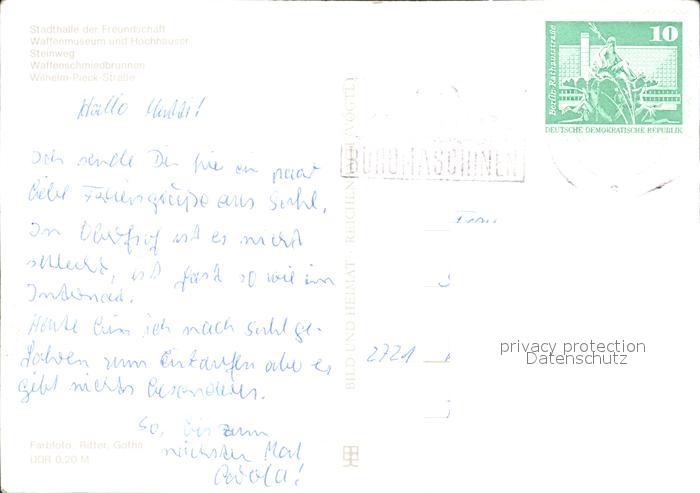 Stadthalle der Freundschaft
Waffenmuseum und Hochhäuser
Steinweg
Waffenschmiedbrunnen
Wilhelm-Pieck-Straße
Hallo Mutti!
Ich sende Dir hier ein paar
liebe Feriengrüße aus Suhl.
In Oberhof ist es nicht
schlecht, ist fast so wie im
Internat.
Heute bin ich nach Suhl ge-
fahren zum Einkaufen aber es
gibt nichts besonderes.
So, bis zum
nächsten Mal
Farbfoto: Ritter, Gotha
DDR 0,20 M
BILD UND HEIMAT REICHENBACH (VOGTL)
BÜROMASCHINEN
10
Berlin-Rathausstraße
DEUTSCHE DEMOKRATISCHE REPUBLIK
Frau
2721
privacy protection
Datenschutz